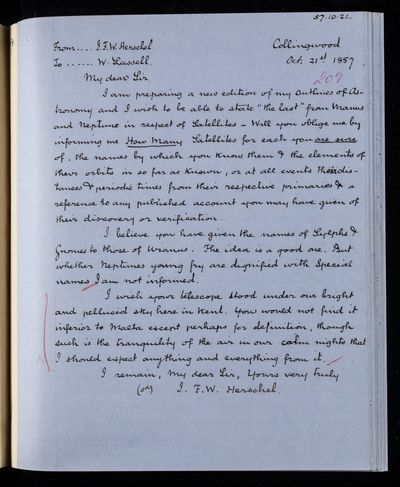 57.10.21.
From.... J.F.W. Herschel Collingwood
To ...... W. Lassell. Oct. 21st 1857
209
My dear Sir,
I am preparing a new edition of my outlines of As-
tronomy and I wish to be able to state "the last" from Uranus
and Neptune in respect of Satellites – Will you oblige me by
informing me How Many Satellites for each you are sure
of, the names by which you know them & the elements of
their orbits in so far as known, or at all events their dis-
tances & periodic times from their respective primaries & a
reference to any published account you may have given of
their discovery or verification.
I believe you have given the names of Sylphs &
Gnomes to those of Uranus. The idea is a good one. But
whether Neptunes young fry are dignified with Special
names I am not informed.
I wish your telescope stood under our bright
and pellucid sky here in Kent. You would not find it
inferior to Malta except perhaps for definition, though
such is the tranquility of the air in our calm nights that
I should expect anything and everything from it.
I remain, my dear Sir, Yours very truly
(sd) J. F.W. Herschel.